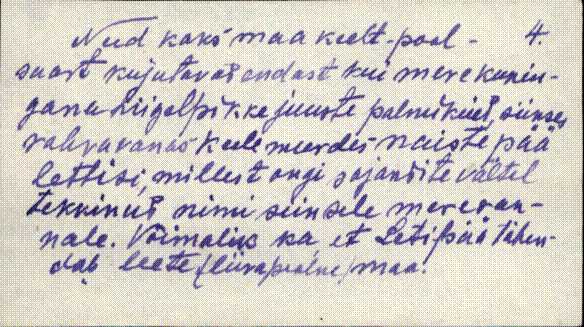 Need kaks maa keelt-pool- 4.
saart kujutavad endast kui merekunin-
gana hiigelpikke juuste palmikuid, siinses
rahvavanas keelemurdes naiste pää
lettisi, millest ongi sajandite vältel
tekkinud nimi siinsele mereran-
nale. Võimalik ka et Letipää tähen-
dab leete (liivapealne) maa.